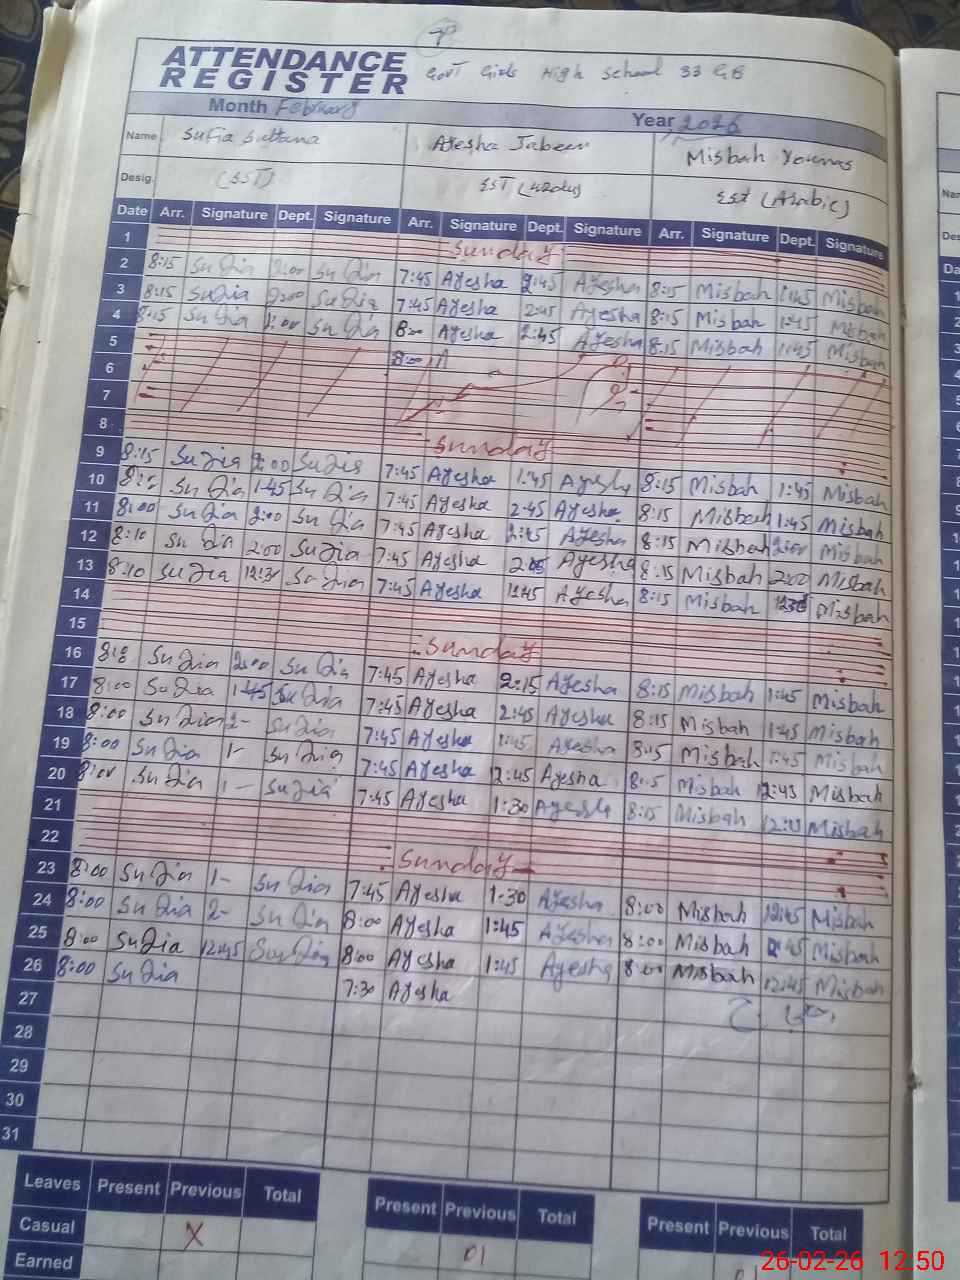 ATTENDANCE
REGISTER Govt Girls High School 33 GB
Month February Year 2026
Name Sufia Sultana Ayesha Jabeen Misbah Younas
Desig. (SST) EST (Urdu) EST (Arabic)
Date Arr. Signature Dept. Signature Arr. Signature Dept. Signature Arr. Signature Dept. Signature
1 Sunday
2 8:15 Sufia 2:00 Sufia 7:45 Ayesha 2:45 Ayesha 8:15 Misbah 1:45 Misbah
3 8:15 Sufia 2:00 Sufia 7:45 Ayesha 2:45 Ayesha 8:15 Misbah 1:45 Misbah
4 8:15 Sufia 1:00 Sufia 8:00 Ayesha 2:45 Ayesha 8:15 Misbah 1:45 Misbah
5 8:00
6
7
8 Sunday
9 8:15 Sufia 2:00 Sufia 7:45 Ayesha 1:45 Ayesha 8:15 Misbah 1:45 Misbah
10 Sufia 1:45 Sufia 7:45 Ayesha 2:45 Ayesha 8:15 Misbah 1:45 Misbah
11 8:00 Sufia 2:00 Sufia 7:45 Ayesha 2:45 Ayesha 8:15 Misbah 2:00 Misbah
12 8:10 Sufia 2:00 Sufia 7:45 Ayesha Ayesha 8:15 Misbah 2:00 Misbah
13 8:10 Sufia 12:30 Sufia 7:45 Ayesha 12:45 Ayesha 8:15 Misbah 12:30 Misbah
14
15 Sunday
16 Sufia 2:00 Sufia 7:45 Ayesha 2:15 Ayesha 8:15 Misbah 1:45 Misbah
17 8:00 Sufia 1:45 Sufia 7:45 Ayesha 2:45 Ayesha 8:15 Misbah 1:45 Misbah
18 8:00 Sufia 2- Sufia 7:45 Ayesha 1:45 Ayesha Misbah 1:45 Misbah
19 8:00 Sufia 1- Sufia 7:45 Ayesha 12:45 Ayesha 8:15 Misbah 12:45 Misbah
20 8:00 Sufia 1- Sufia 7:45 Ayesha 1:30 Ayesha 8:15 Misbah Misbah
21
22 Sunday
23 8:00 Sufia 1- Sufia 7:45 Ayesha 1:30 Ayesha 8:00 Misbah 12:45 Misbah
24 8:00 Sufia 2- Sufia 8:00 Ayesha 1:45 Ayesha 8:00 Misbah Misbah
25 8:00 Sufia 12:45 Sufia 8:00 Ayesha 1:45 Ayesha 8:00 Misbah 12:45 Misbah
26 8:00 Sufia 7:30 Ayesha
27
28
29
30
31
Leaves Present Previous Total Present Previous Total Present Previous Total
Casual X 01 01
Earned
26-02-26 12.50